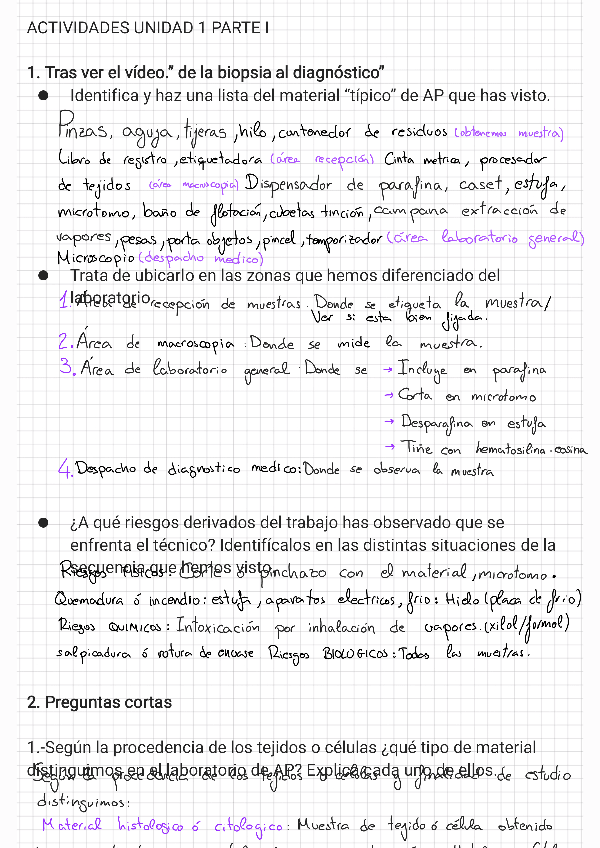 ACTIVIDADES UNIDAD 1 PARTE I
1. Tras ver el vídeo.” de la biopsia al diagnóstico”
● Identifica y haz una lista del material “típico” de AP que has visto.
Pinzas, aguja, tijeras, hilo, contenedor de residuos (obtenemos muestra)
Libro de registro, etiquetadora (área recepción) Cinta metrica, procesador
de tejidos (área macroscopia) Dispensador de parafina, caset, estufa,
microtomo, baño de flotación, cubetas tinción, campana extracción de
vapores, pesas, porta objetos, pincel, temporizador (área laboratorio general)
Microscopio (despacho medico)
● Trata de ubicarlo en las zonas que hemos diferenciado del
laboratorio.
1. Área de recepción de muestras. Donde se etiqueta la muestra/
Ver si esta bien fijada.
2. Área de macroscopia: Donde se mide la muestra.
3. Área de laboratorio general: Donde se → Incluye en parafina
→ Corta en microtomo
→ Desparafina en estufa
→ Tiñe con hematosilina-eosina
4. Despacho de diagnostico medico: Donde se observa la muestra
● ¿A qué riesgos derivados del trabajo has observado que se
enfrenta el técnico? Identifícalos en las distintas situaciones de la
secuencia que hemos visto.
Riesgos Físicos: Corte o pinchazo con el material, microtomo.
Quemadura ó incendio: estufa, aparatos electricos, frio: Hielo (placa de frio)
Riegos QUIMICOS: Intoxicación por inhalación de vapores. (xilol/formol)
salpicadura ó rotura de envase Riesgos BIOLOGICOS: Todas las muestras.
2. Preguntas cortas
1.-Según la procedencia de los tejidos o células ¿qué tipo de material
distinguimos en el laboratorio de AP? Explica cada uno de ellos.
Según la procedencia de los tejidos o células y finalidad de estudio
distinguimos:
Material histologico ó citologico: Muestra de tejido ó célula obtenido